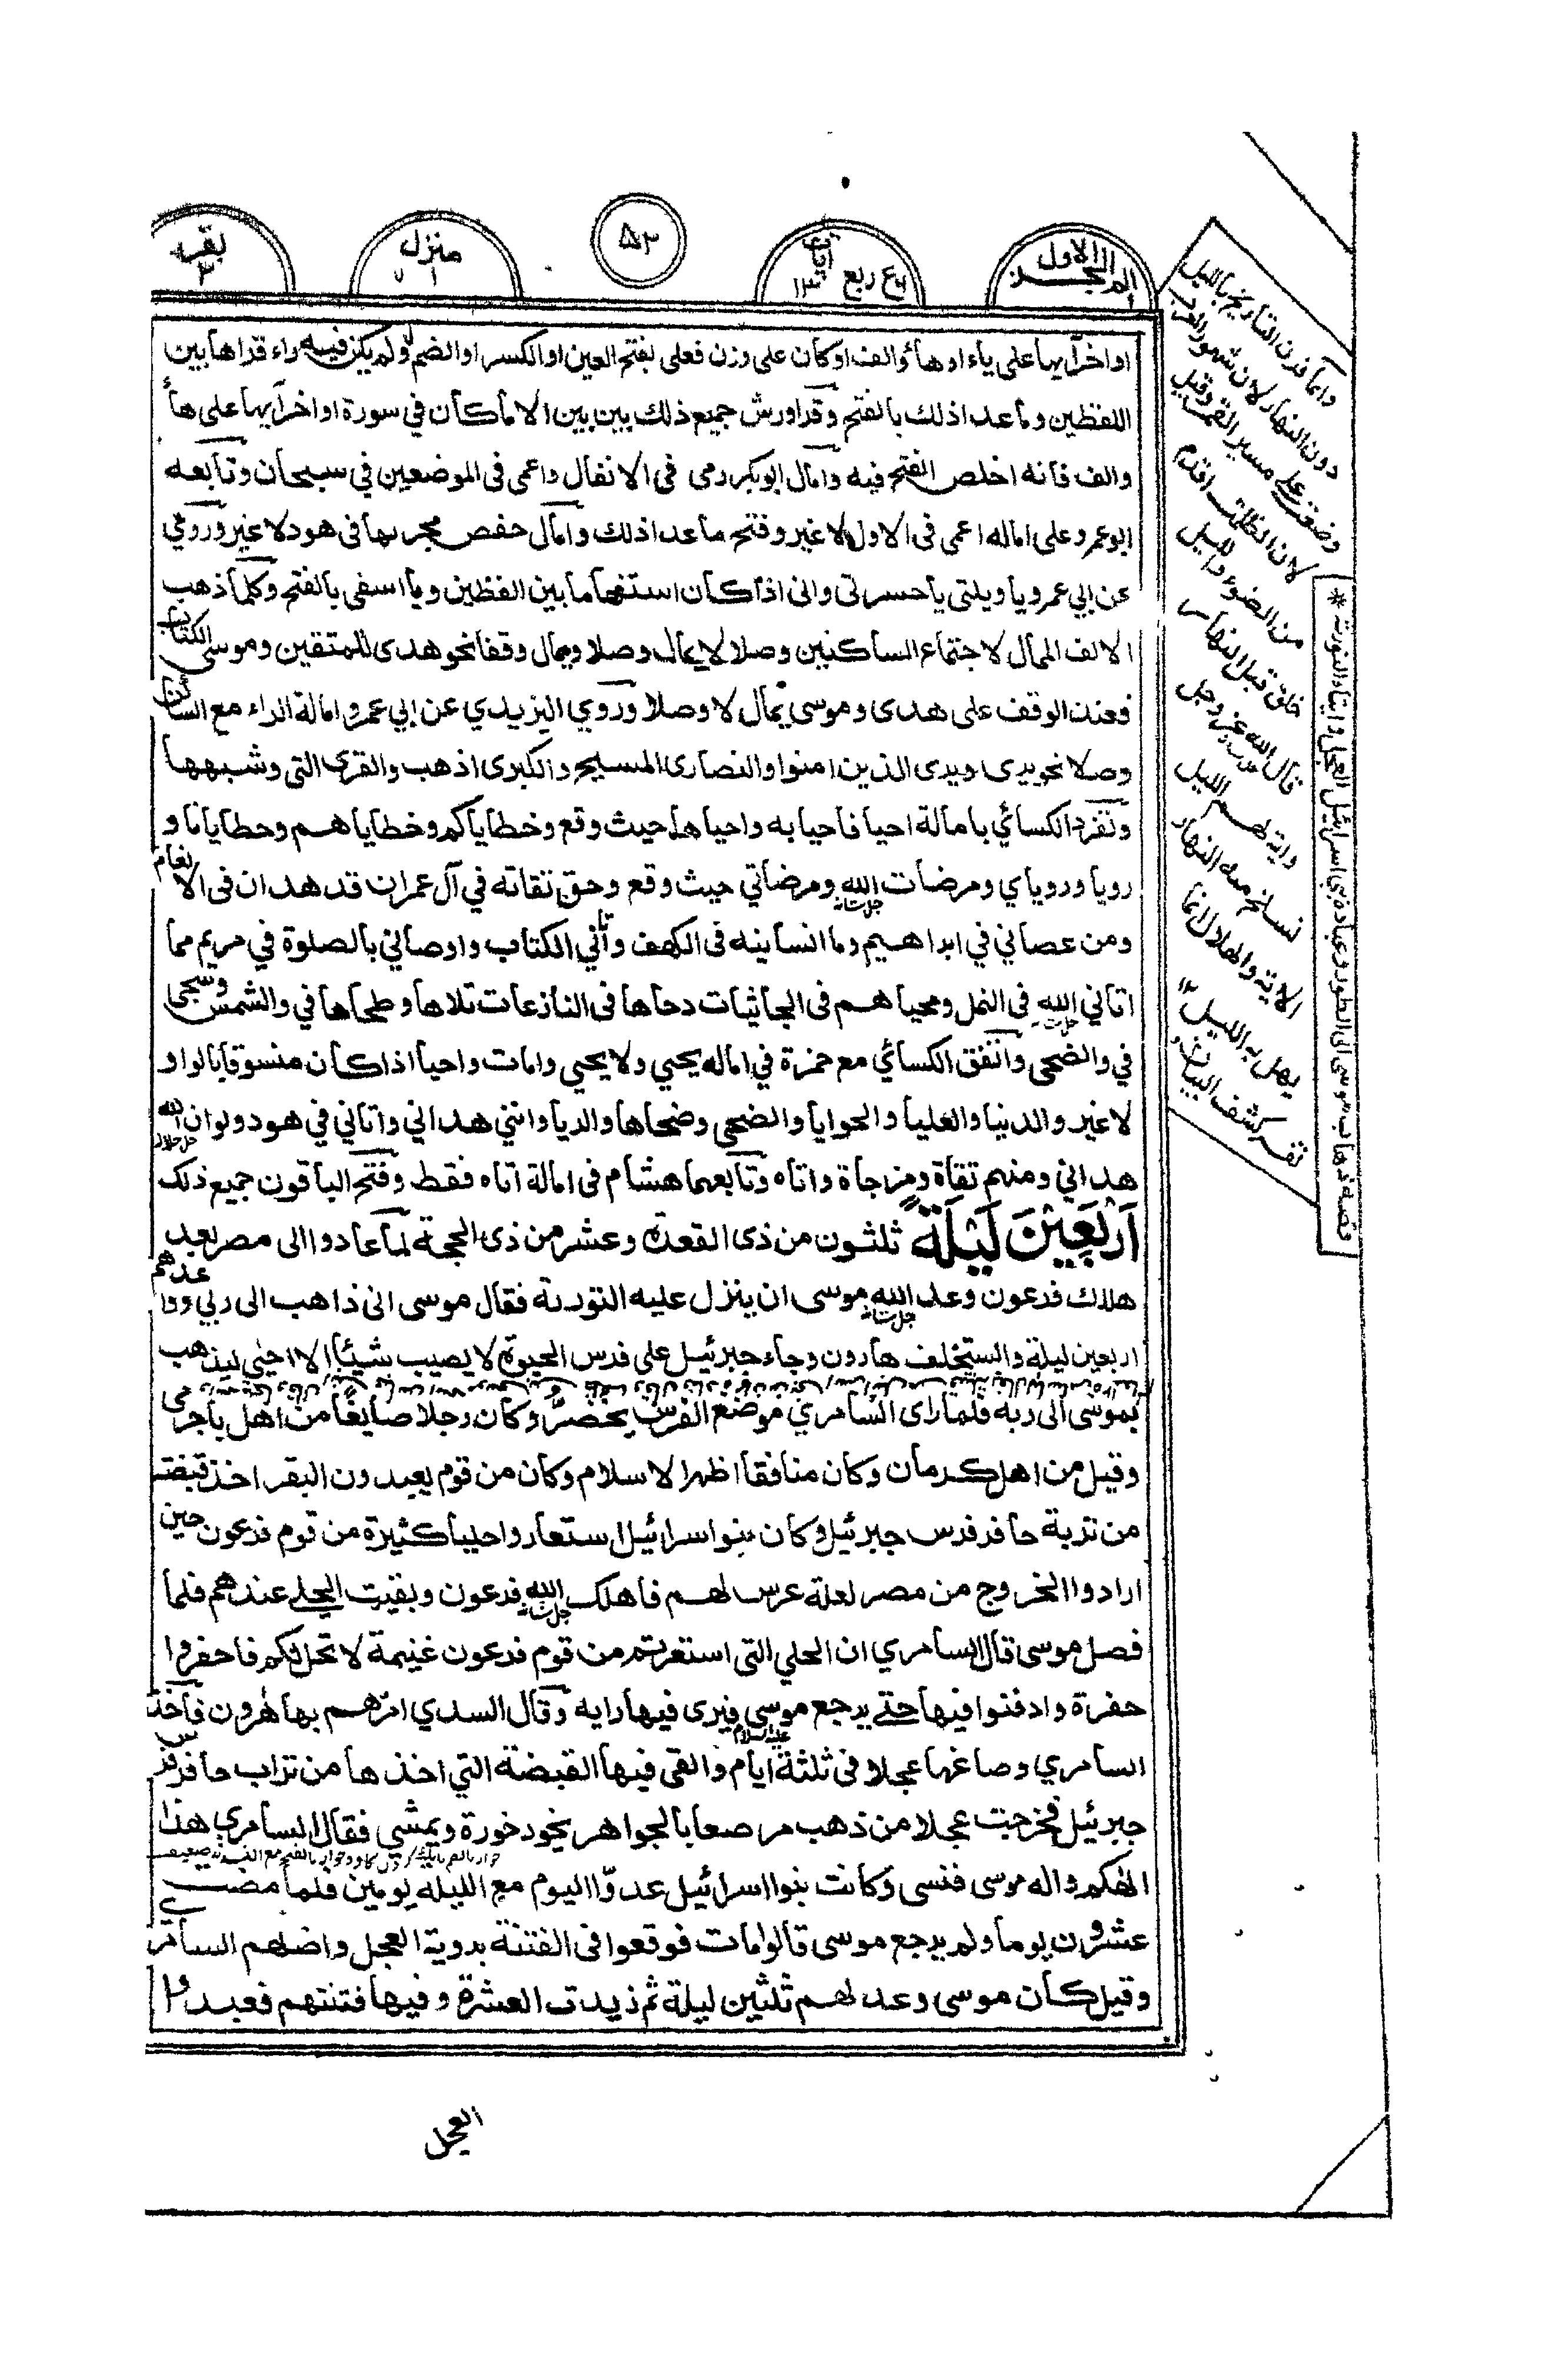 الم الجزء الاول
ربع ايات ١٣
٥٢
منزل ١
بقره ٢
او اخر آيها على ياء او هاء والف او كان على وزن فعلى بفتح العين او الكسر او الضم ولم يكن فيه راء قراها بين
اللفظين وما عدا ذلك بالفتح وقرا ورش جميع ذلك بين بين الا ما كان في سورة او اخر آيها على هاء
والف فانه اخلص الفتح فيه وامال ابوبكر رمى فى الانفال واعمى فى الموضعين في سبحان وتابعه
ابوعمرو على اماله اعمى فى الاول لا غير وفتح ما عدا ذلك وامال حفص مجريها فى هود لا غير وروي
عن ابي عمرو يا ويلتى يا حسرتى وانى اذا كان استفهاما بين الفظين ويا اسفى بالفتح وكلما ذهب
الالف الممال لاجتماع الساكنين وصلا لا يمال وصلا ويمال وقفا نحو هدى للمتقين وموسى الكتاب
فعند الوقف على هدى وموسى يمال لا وصلا وروي اليزيدي عن ابي عمرو امالة الراء مع الساكن
وصلا نحو يرى ويرى الذين امنوا والنصارى المسيح والكبرى اذهب والقرى التى وشبهها
وتفرد الكسائي بامالة احيا فاحيا به واحياها حيث وقع وخطاياكم وخطاياهم وخطايانا و
رويا وروياي ومرضات الله جل شانه ومرضاتي حيث وقع وحق تقاته في آل عمران قد هدان فى الانعام
ومن عصاني في ابراهيم وما انسانيه فى الكهف وآتاني الكتاب واوصاني بالصلوة في مريم مما
اتاني الله جل شانه فى النمل ومحياهم فى الجاثيات دحاها فى النازعات تلاها وطحاها في والشمس وسجى
في والضحى واتفق الكسائي مع حمزة في اماله يحيي ولا يحيي وامات واحيا اذا كان منسوقا بالواو
لا غير والدنيا والعليا والحوايا والضحى وضحاها والربا وانني هداني واتاني في هود ولو ان الله جل جلاله
هداني ومنهم تقاة ومزجاة واناه وتابعهما هشام فى امالة اناه فقط وفتح الباقون جميع ذلك
اَرْبَعِيْنَ لَيْلَةً ثلثون من ذى القعدة وعشر من ذى الحجة لما عادوا الى مصر بعد
هلاك فرعون وعد الله جل شانه موسى ان ينزل عليه التورىة فقال موسى انى ذاهب الى ربي وواعدهم
اربعين ليلة واستخلف هارون وجاء جبرئيل على فرس الحيوة لا يصيب شيئا الا احيي ليذهب
بموسى الى ربه فلما راى السامري موضع الفرس يخضرّ وكان رجلا صايغا من اهل باجرمى
وقيل من اهل كرمان وكان منافقا اظهر الاسلام وكان من قوم يعبدون البقر اخذ قبضة
من تربة حافر فرس جبرئيل وكان بنو اسرائيل استعاروا حليا كثيرة من قوم فرعون حين
ارادوا الخروج من مصر لعلة عرس لهم فاهلك الله جل شانه فرعون وبقيت الحلي عندهم فلما
فصل موسى قال السامري ان الحلي التى استعرتم من قوم فرعون غنيمة لا تحل لكم فاحفروا
حفرة وادفنوا فيها حتى يرجع موسى عليه السلام فيرى فيها رايه وقال السدي امرهم بها هرون فاخذ
السامري وصاغها عجلا فى ثلثة ايام والقى فيها القبضة التي اخذها من تراب حافر فرس
جبرئيل فخرجت عجلا من ذهب مرصعا بالجواهر يخور خورة ويمشي فقال السامري هذا
الهكم واله موسى فنسى وكانت بنو اسرائيل عدوّا اليوم مع الليله يومين فلما مضت
عشرون يوما ولم يرجع موسى قالوا مات فوقعوا فى الفتنة بروية العجل واضلهم السامري
وقيل كان موسى وعد لهم ثلثين ليلة ثم زيدت العشرة وفيها فتنتهم فعبدوا
العجل
وانما قرن التاريخ بالليل
دون النهار لان شهور العرب
وضعت على مسير القمر وقيل
لان الظلمة اقدم
من الضوء والليل
خلق قبل النهار
قال الله عز وجل
واية لهم الليل
نسلخ منه النهار
الاية والهلال انما
يهل به الليل ١٢
تفسير كشف البيان
قصه ذهاب موسى الى الطور وعبادة بني اسرائيل العجل وايتاء التورىة *